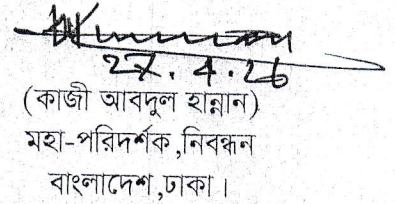 27.4.26
(কাজী আবদুল হান্নান)
মহা-পরিদর্শক,নিবন্ধন
বাংলাদেশ,ঢাকা।